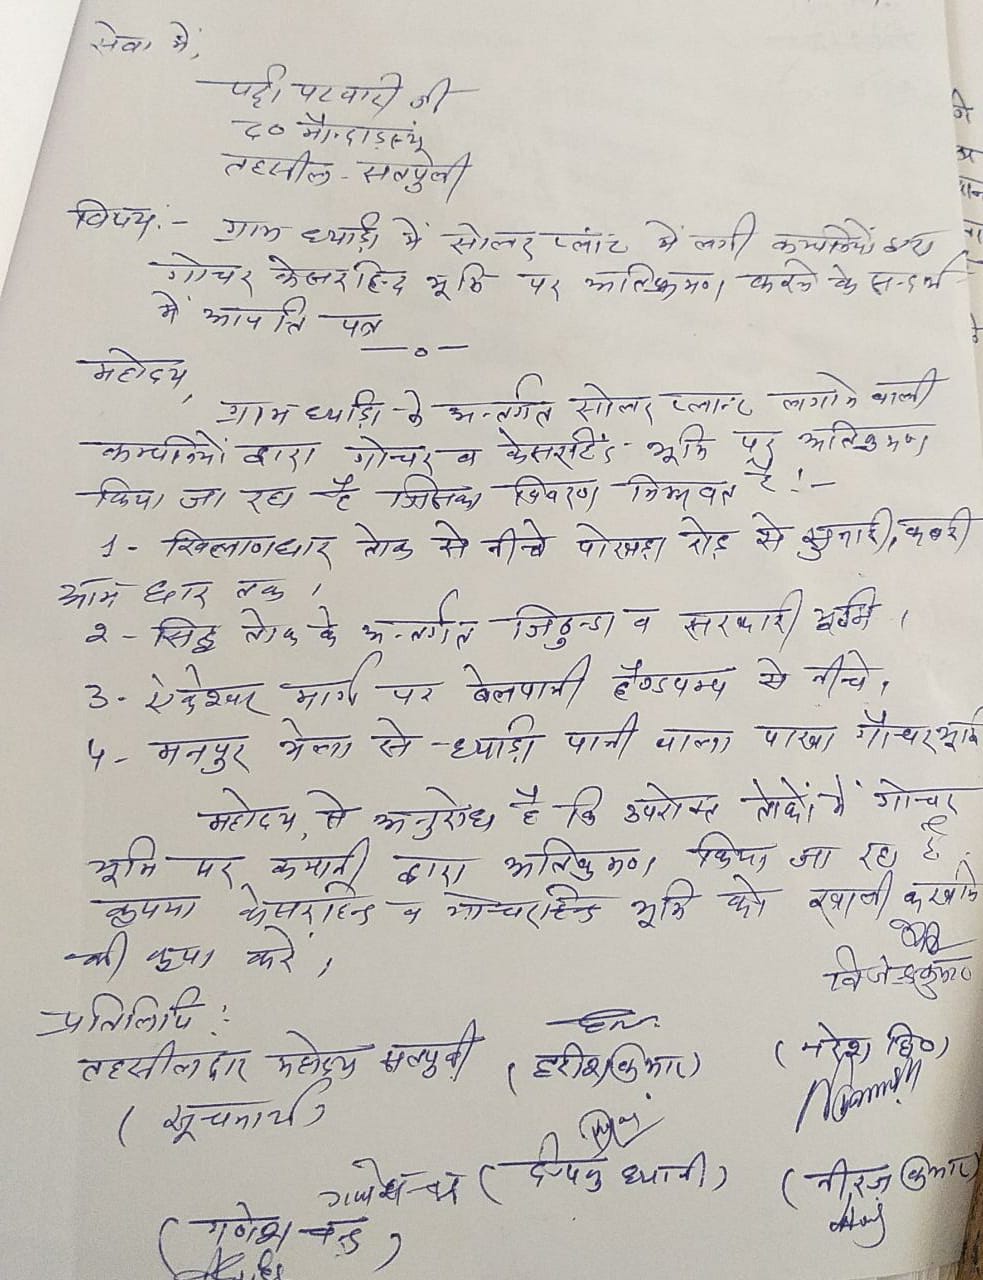 सेवा में,
पट्टी पटवारी जी
द० मौन्दाड़स्यूं
तहसील - सतपुली
विषय:- ग्राम ध्याड़ी में सोलर प्लांट में लगी कम्पनियों द्वारा
गोचर केसरहिन्द भूमि पर अतिक्रमण करने के सन्दर्भ
में आपत्ति पत्र
—०—
महोदय,
ग्राम ध्याड़ी के अन्तर्गत सोलर प्लान्ट लगाने वाली
कम्पनियों द्वारा गोचर व केसरहिंद भूमि पर अतिक्रमण
किया जा रहा है जिसका विवरण निम्नवत है !-
1- खिलाणधार तोक से नीचे पोखड़ा रोड़ से
आम धार तक ।
2- सिद्ध तोक के अन्तर्गत व सरकारी भूमि ।
3- ऐकेश्वर मार्ग पर बेलपानी हैण्डपम्प से नीचे ।
4- मनपुर मेला से ध्याड़ी पानी वाला पाखा गौचर भूमि
महोदय, से अनुरोध है कि उपरोक्त तोकों में गोचर
भूमि पर कम्पनी द्वारा अतिक्रमण किया जा रहा है.
कृपया केसरहिन्द व गोचरहिन्द भूमि को खाली करवाने
की कृपा करें ।
विजेन्द्र कुमार
प्रतिलिपि :-
तहसीलदार महोदय सतपुली (हरीश कुमार) (नरेश सिंह)
(सूचनार्थ)
गणेश चन्द्र (दीपक ध्यानी) (नीरज कुमार)
(गणेश चन्द्र)